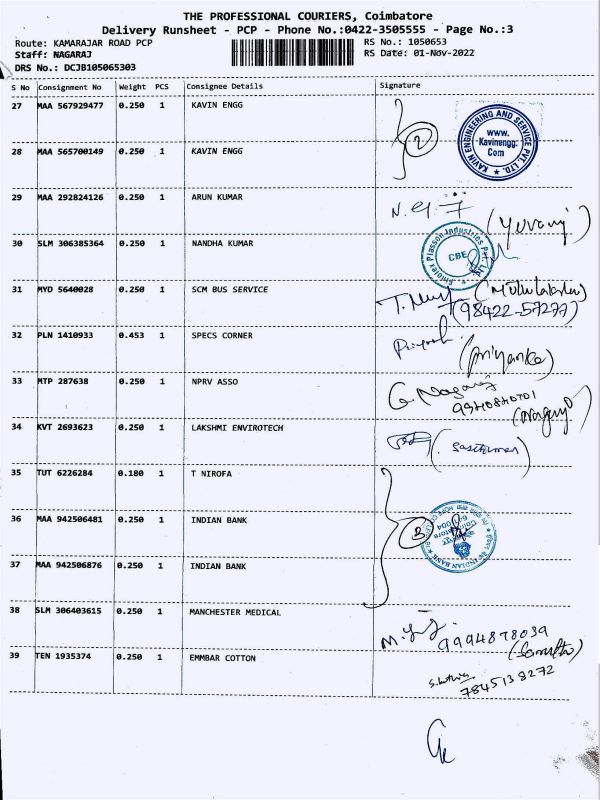 THE PROFESSIONAL COURIERS, Coimbatore
Delivery Runsheet - PCP - Phone No.:0422-3505555 - Page No.:3
Route: KAMARAJAR ROAD PCP RS No.: 1050653
Staff: NAGARAJ RS Date: 01-Nov-2022
DRS No.: DCJB105065303
S No Consignment No Weight PCS Consignee Details Signature
27 MAA 567929477 0.250 1 KAVIN ENGG
2
KAVIN ENGINEERING AND SERVICE PVT. LTD.
www.
Kavinengg.
Com
28 MAA 565700149 0.250 1 KAVIN ENGG
29 MAA 292824126 0.250 1 ARUN KUMAR
30 SLM 306385364 0.250 1 NANDHA KUMAR
CBE
31 MYD 5640028 0.250 1 SCM BUS SERVICE
(98422-57277)
32 PLN 1410933 0.453 1 SPECS CORNER
(Priyanka)
33 MTP 287638 0.250 1 NPRV ASSO
G. Nagaraj
9940840701
34 KVT 2693623 0.250 1 LAKSHMI ENVIROTECH
35 TUT 6226284 0.180 1 T NIROFA
36 MAA 942506481 0.250 1 INDIAN BANK
3
INDIAN BANK
37 MAA 942506876 0.250 1 INDIAN BANK
38 SLM 306403615 0.250 1 MANCHESTER MEDICAL
9994878039
39 TEN 1935374 0.250 1 EMMBAR COTTON
7845138272